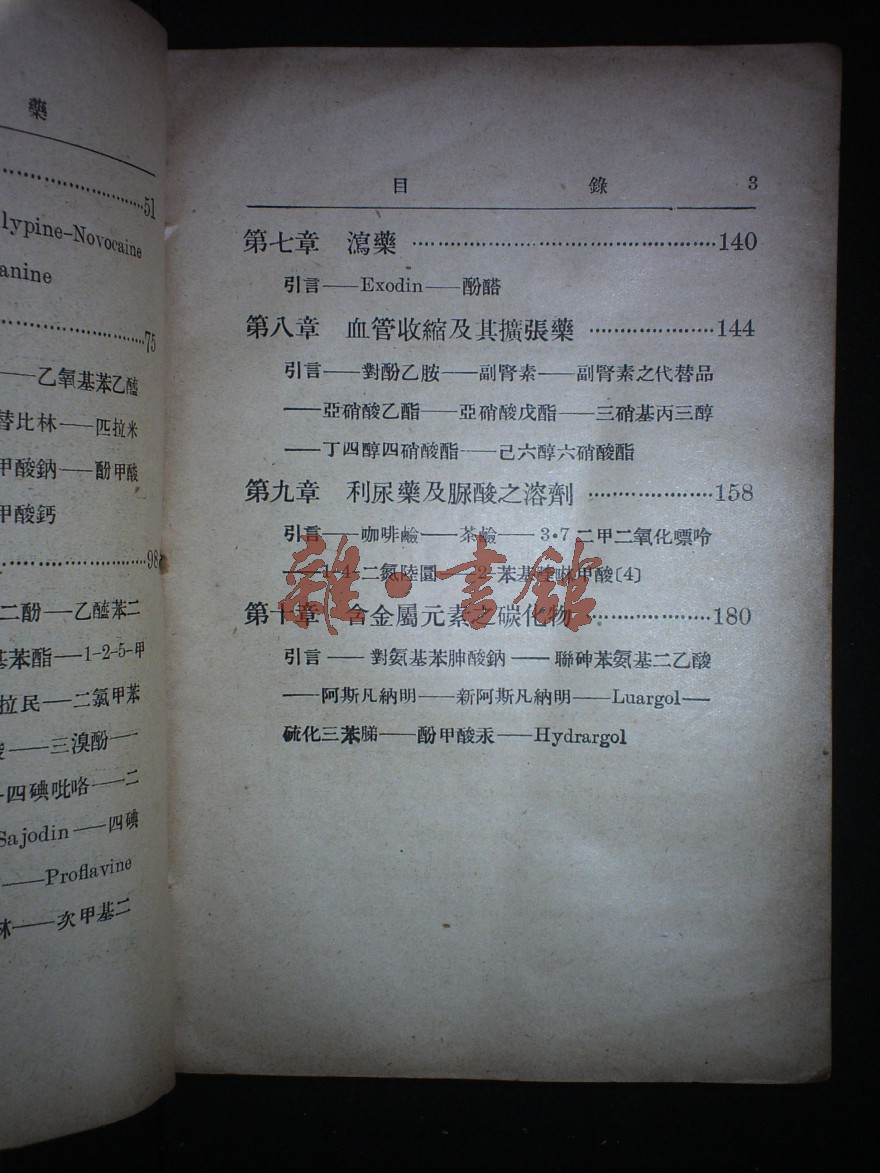 藥
51
lypine–Novocaine
anine
75
——乙氧基苯乙醯
替比林——匹拉米
甲酸鈉——酚甲酸
甲酸鈣
98
二酚—乙醯苯二
基苯酯——1-2-5-甲
拉民——二氯甲苯
——三溴酚—
四碘吡咯——二
Sajodin——四碘
——Proflavine
——次甲基二
目 錄 3
第七章 瀉藥 ……………………………140
引言——Exodin——酚醛
第八章 血管收縮及其擴張藥 ……………144
引言——對酚乙胺——副腎素——副腎素之代替品
——亞硝酸乙酯——亞硝酸戊酯——三硝基丙三醇
——丁四醇四硝酸酯——己六醇六硝酸酯
第九章 利尿藥及脲酸之溶劑 ……………158
引言——咖啡鹼——茶鹼——3·7二甲二氧化嘌呤
——1-4-二氮陸圜——2-苯基喹啉甲酸〔4〕
第十章 含金屬元素之碳化物 ……………180
引言——對氨基苯胂酸鈉——聯砷苯氨基二乙酸
——阿斯凡納明——新阿斯凡納明——Luargol—
硫化三苯䏲——酚甲酸汞——Hydrargol
雜·書館